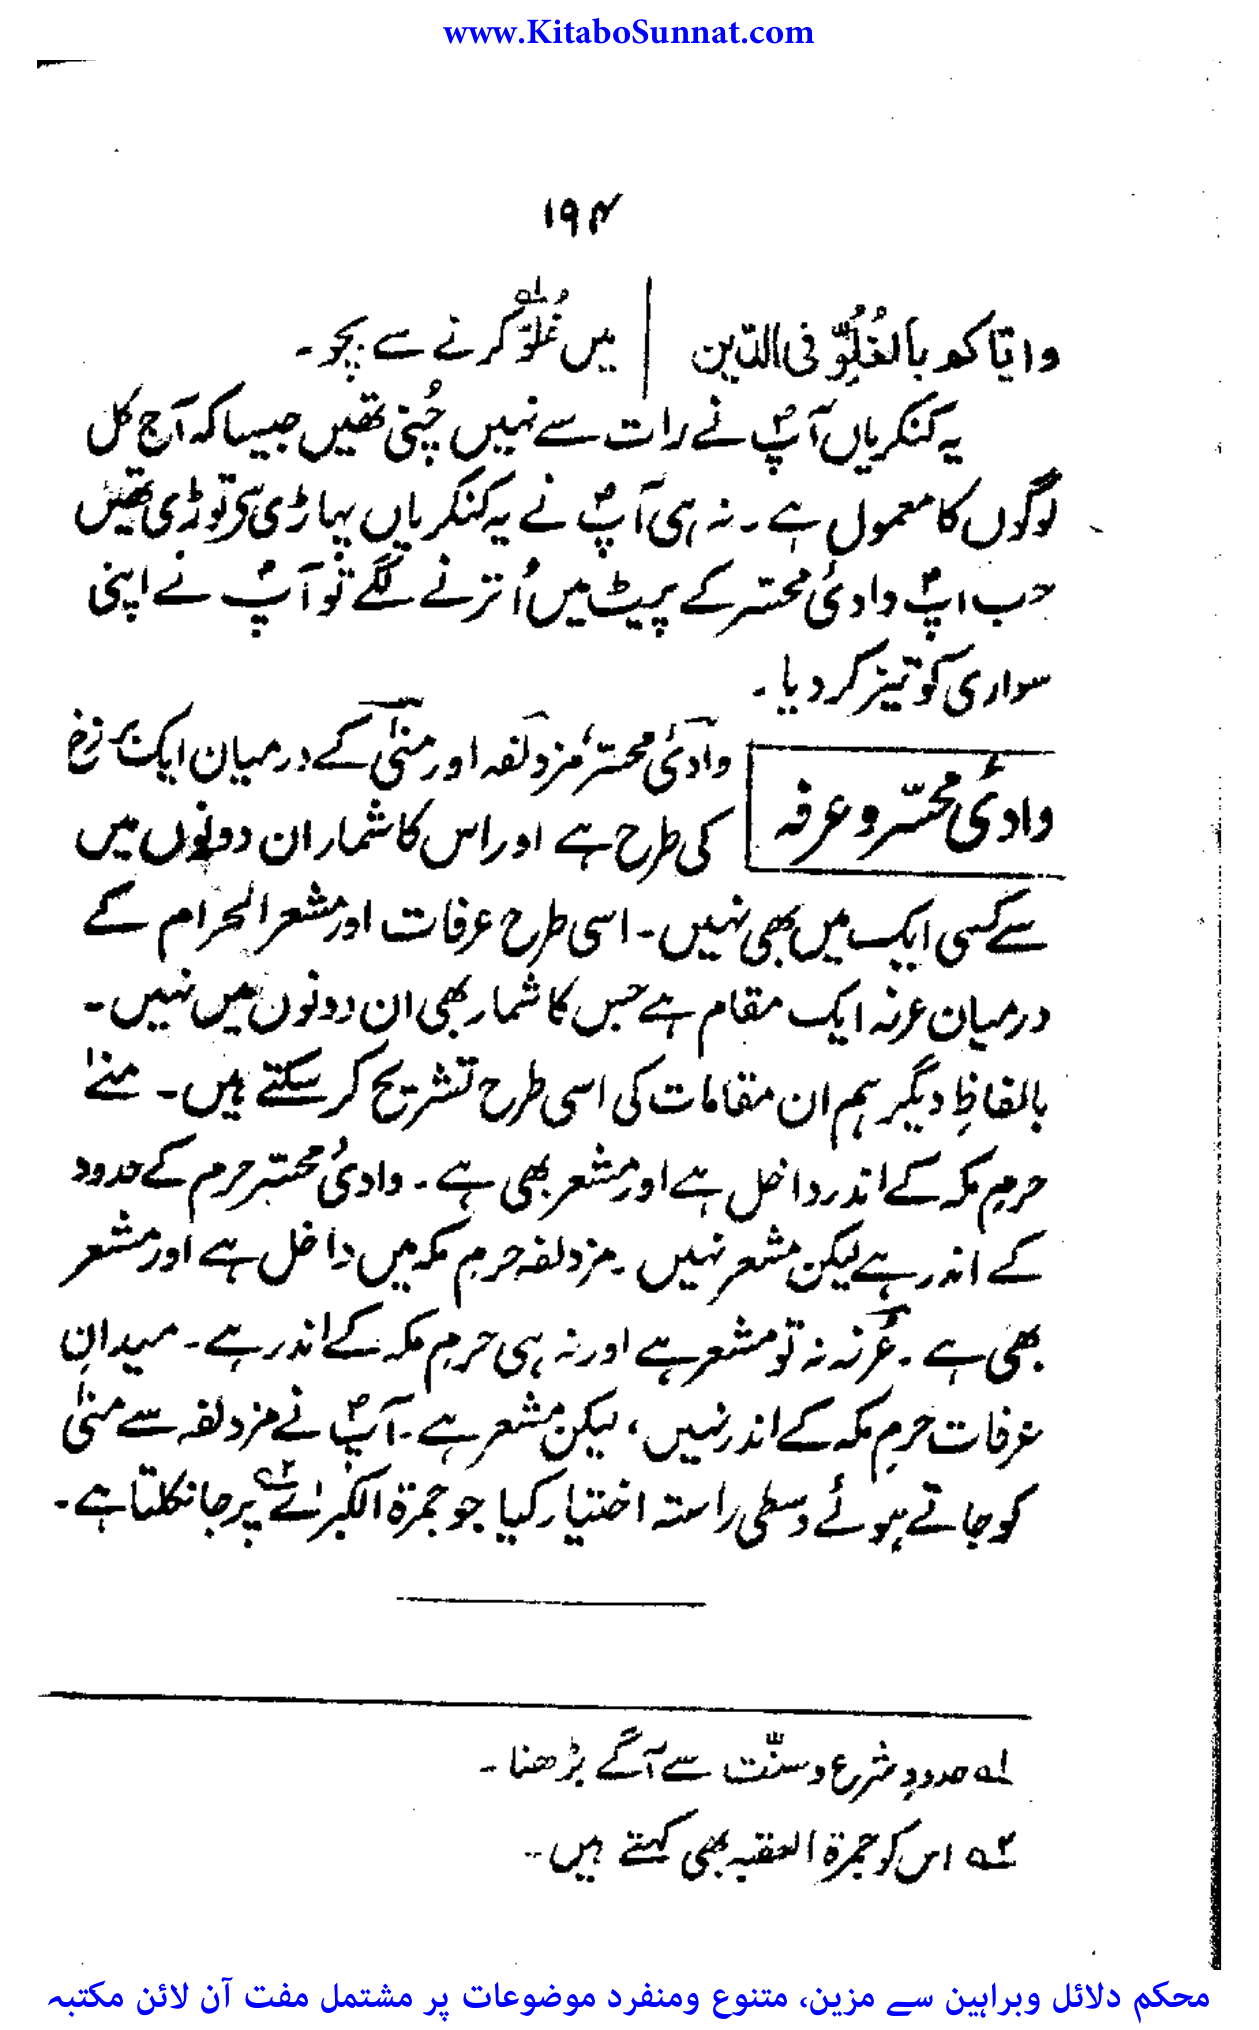 www.KitaboSunnat.com
۱۹۴
وایّاکم بالغُلُوِّ فی الدّین | میں غُلُوّ ؂۱ کرنے سے بچو۔
یہ کنکریاں آپؐ نے رات سے نہیں چُنی تھیں جیسا کہ آج کل
لوگوں کا معمول ہے۔ نہ ہی آپؐ نے یہ کنکریاں پہاڑی سے توڑی تھیں
جب آپؐ وادیٔ محسّر کے پیٹ میں اُترنے لگے تو آپؐ نے اپنی
سواری کو تیز کر دیا۔
وادیٔ محسّر و عرفہ
وادیٔ محسّر، مزدلفہ اور منیٰ کے درمیان ایک برزخ
کی طرح ہے اور اس کا شمار ان دونوں میں
سے کسی ایک میں بھی نہیں۔ اسی طرح عرفات اور مشعر الحرام کے
درمیان عرنہ ایک مقام ہے جس کا شمار بھی ان دونوں میں نہیں۔
بالفاظِ دیگر ہم ان مقامات کی اسی طرح تشریح کر سکتے ہیں۔ منےٰ
حرمِ مکہ کے اندر داخل ہے اور مشعر بھی ہے۔ وادیٔ محسّر حرم کے حدود
کے اندر ہے لیکن مشعر نہیں۔ مزدلفہ حرمِ مکہ میں داخل ہے اور مشعر
بھی ہے۔ عُرنہ نہ تو مشعر ہے اور نہ ہی حرمِ مکہ کے اندر ہے۔ میدانِ
عرفات حرمِ مکہ کے اندر نہیں، لیکن مشعر ہے۔ آپؐ نے مزدلفہ سے منیٰ
کو جاتے ہوئے وسطی راستہ اختیار کیا جو جمرۃ الکبرےٰ ؂۲ پر جا نکلتا ہے۔
؂۱ حدودِ شرع و سنّت سے آگے بڑھنا۔
؂۲ اس کو جمرۃ العقبہ بھی کہتے ہیں۔
محکم دلائل وبراہین سے مزین، متنوع ومنفرد موضوعات پر مشتمل مفت آن لائن مکتبہ